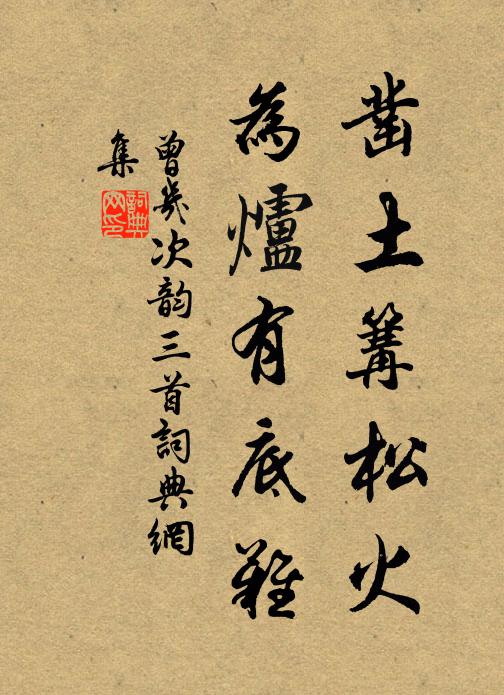 凿土篝松火
為爐有底難
曾幾次韵三首詞典網
集
詞典
网印